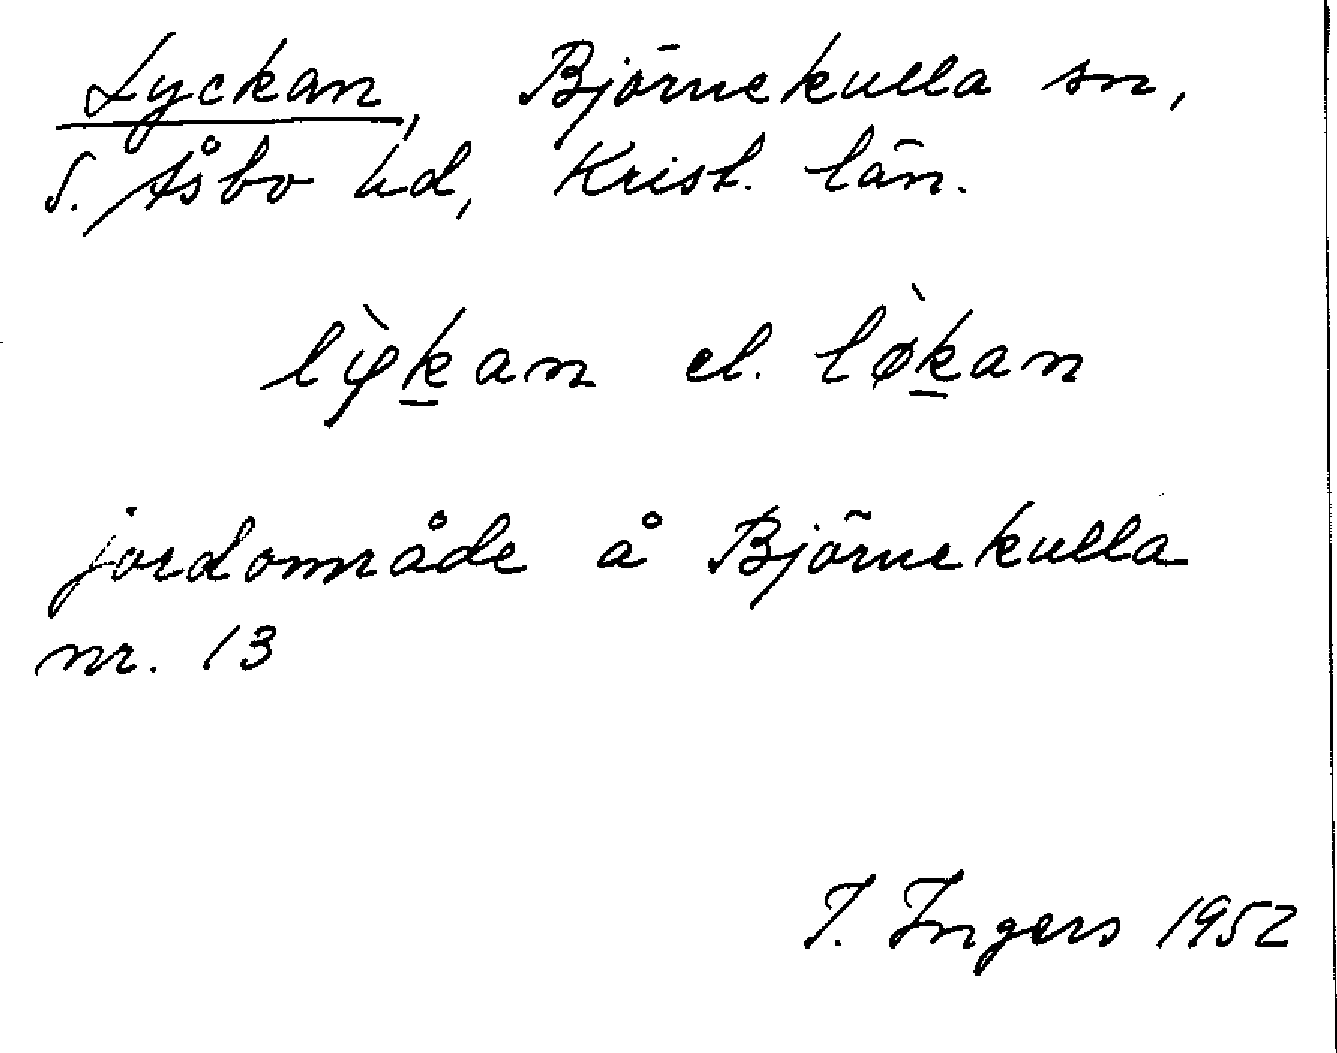 Lyckan, Björnekulla sn,
S. Åsbo hd, Krist. län.
lỳk̲an el. lø̀k̲an
jordområde å Björnekulla
nr. 13
I. Ingers 1952